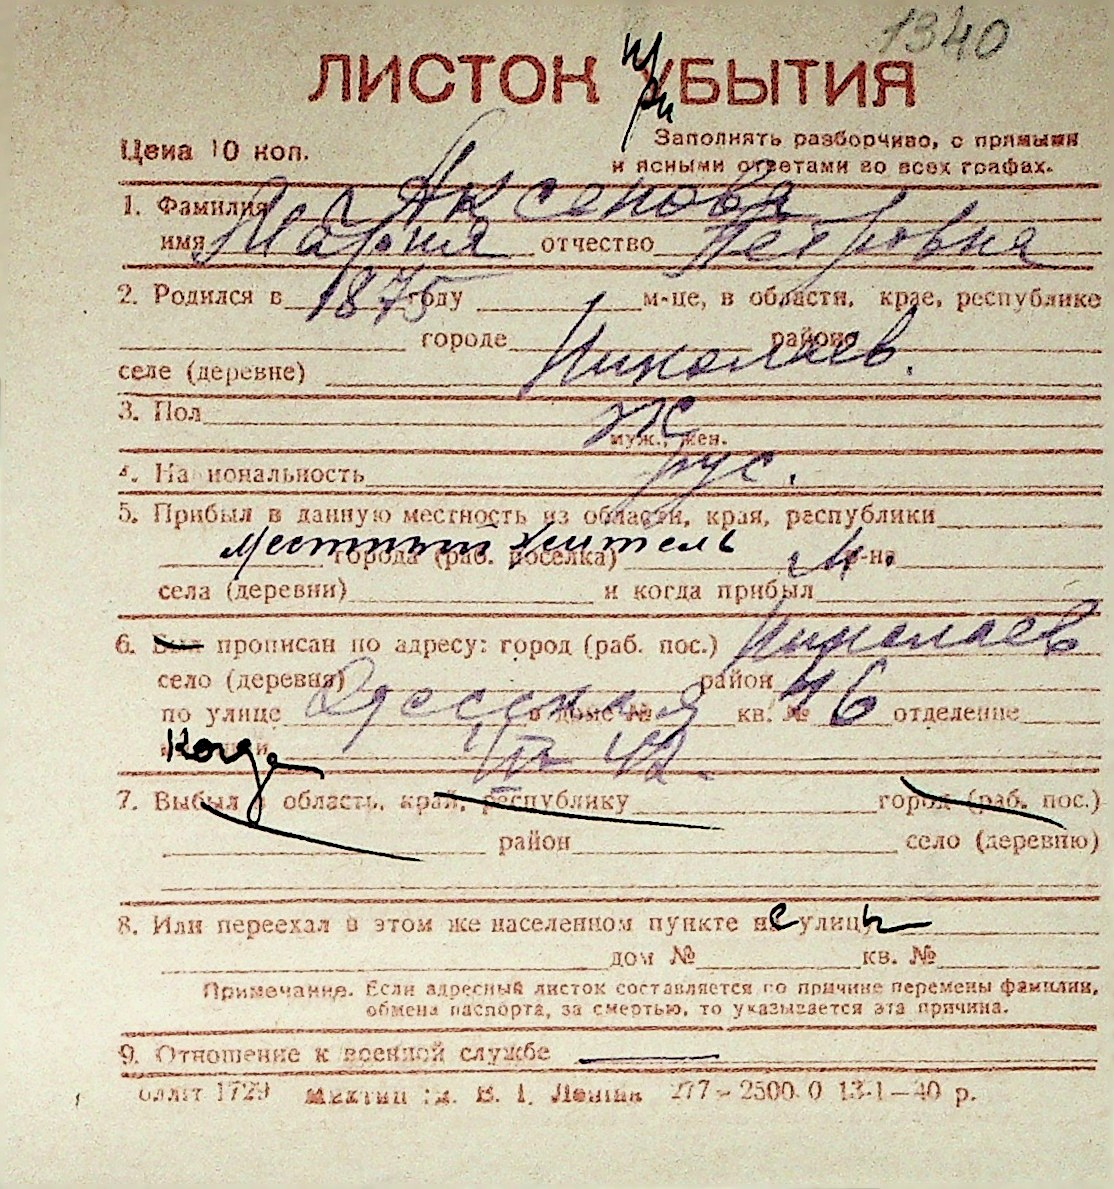 1340
ЛИСТОК при УБЫТИЯ
Цена 10 коп.
Заполнять разборчиво, с прямыми
и ясными ответами во всех графах.
1. Фамилия Аксенова
имя Мария отчество Петровна
2. Родился в 1875 году м-це, в области, крае, республике
городе районе
селе (деревне) Николаев.
3. Пол Ж
муж., жен.
4. Национальность рус.
5. Прибыл в данную местность из области, края, республики
местный житель
города (раб. поселка) р-на
села (деревни) и когда прибыл
6. Был прописан по адресу: город (раб. пос.) Николаев
село (деревня) район
по улице Одесская в доме № кв. № 46 отделение
Когда VIII 42.
7. Выбыл в область, край, республику город (раб. пос.)
район село (деревню)
8. Или переехал в этом же населенном пункте не улицы
дом № кв. №
Примечание. Если адресный листок составляется по причине перемены фамилии,
обмена паспорта, за смертью, то указывается эта причина.
9. Отношение к военной службе —
1729 В. І. Леніна 277-2500.0 13-1-40 р.